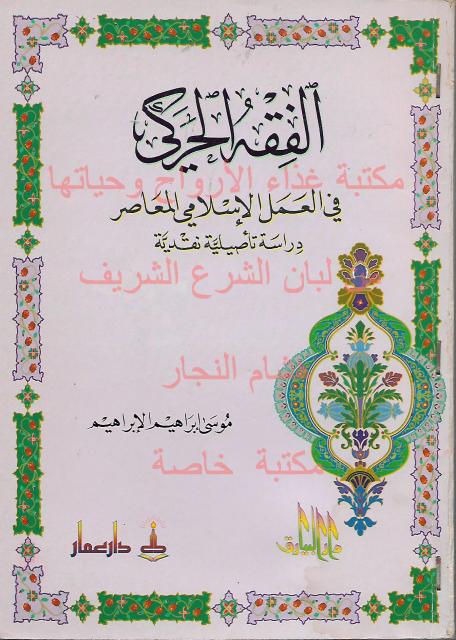 الفِقْهُ الحَرَكي
مكتبة غذاء الارواح وحياتها
في العَمَل الإسْلامي المُعَاصر
دِرَاسَة تَأصِيليَّة نَقْديَّة
لبان الشرع الشريف
النجار
مُوسَى إبرَاهيم الإبرَاهيم
مكتبة خاصة
دار البيارق
دار عمار